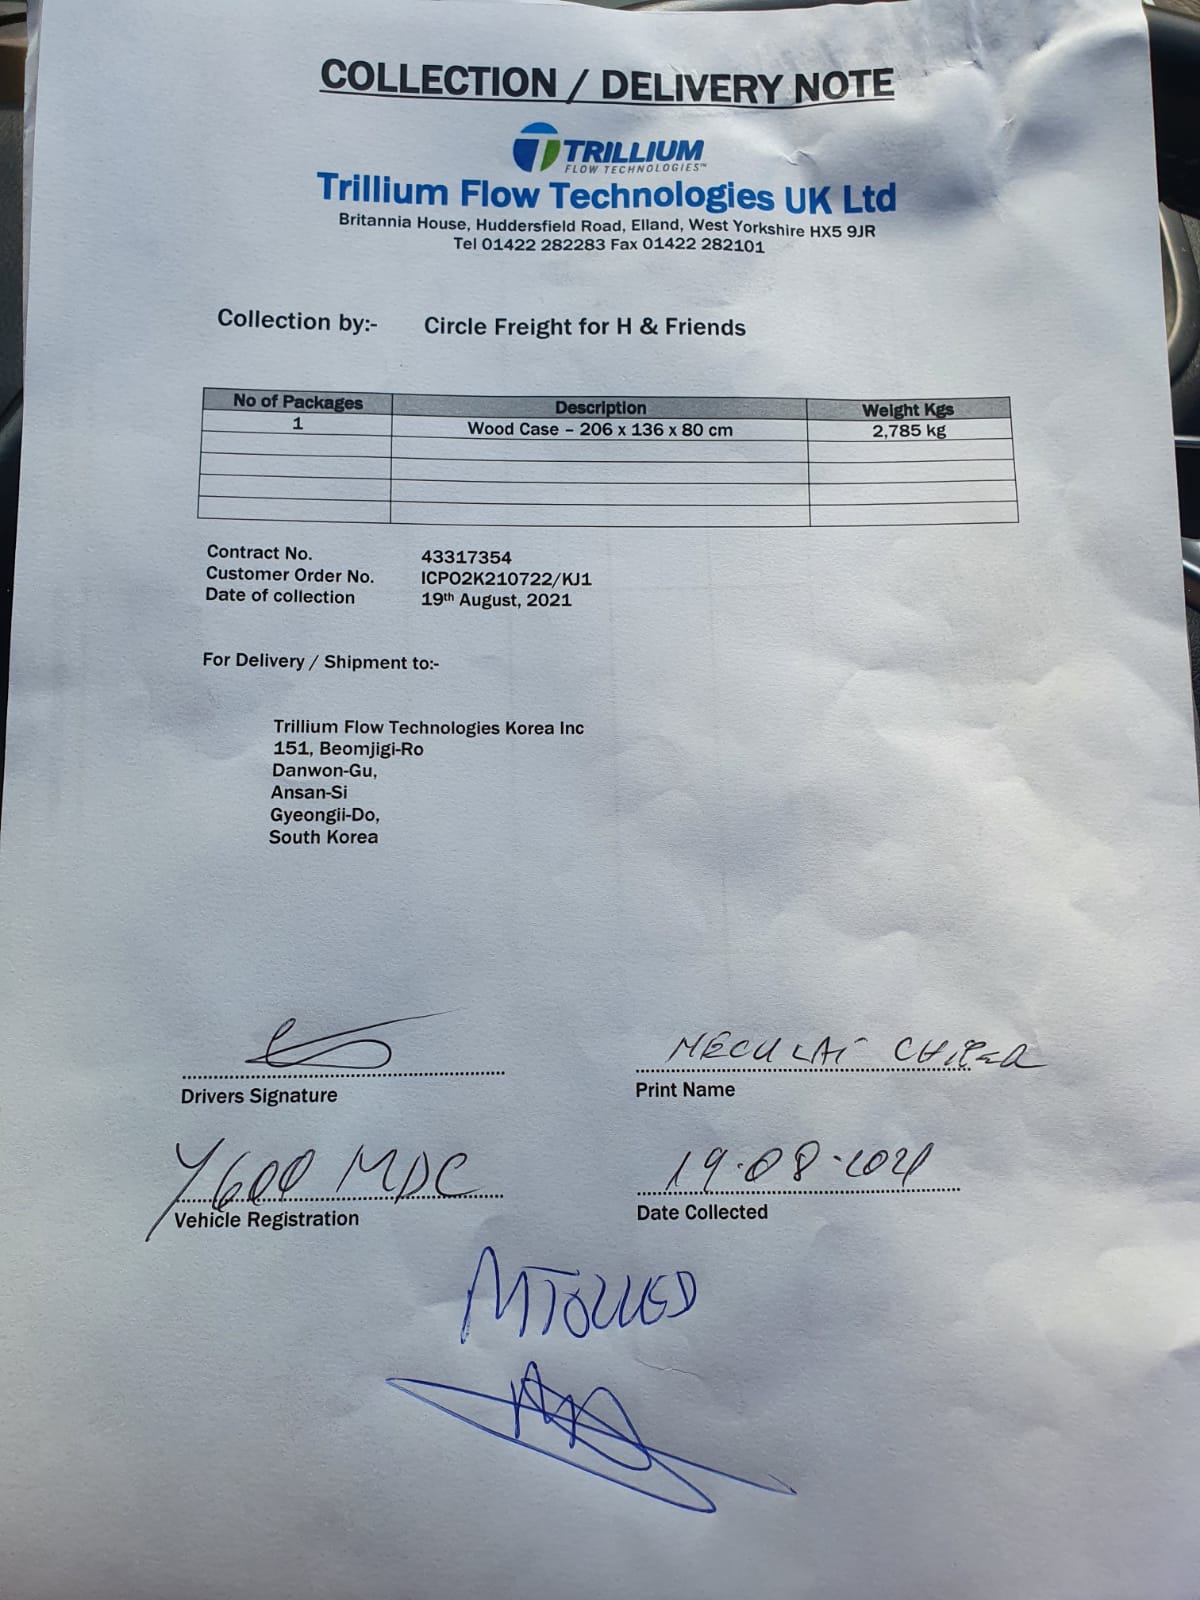 COLLECTION / DELIVERY NOTE
TRILLIUM
FLOW TECHNOLOGIES™
Trillium Flow Technologies UK Ltd
Britannia House, Huddersfield Road, Elland, West Yorkshire HX5 9JR
Tel 01422 282283 Fax 01422 282101
Collection by:- Circle Freight for H & Friends
No of Packages Description Weight Kgs
1 Wood Case – 206 x 136 x 80 cm 2,785 kg
Contract No. 43317354
Customer Order No. ICPO2K210722/KJ1
Date of collection 19th August, 2021
For Delivery / Shipment to:-
Trillium Flow Technologies Korea Inc
151, Beomjigi-Ro
Danwon-Gu,
Ansan-Si
Gyeongii-Do,
South Korea
Drivers Signature Print Name
Y600 MDC 19.08.2021
Vehicle Registration Date Collected